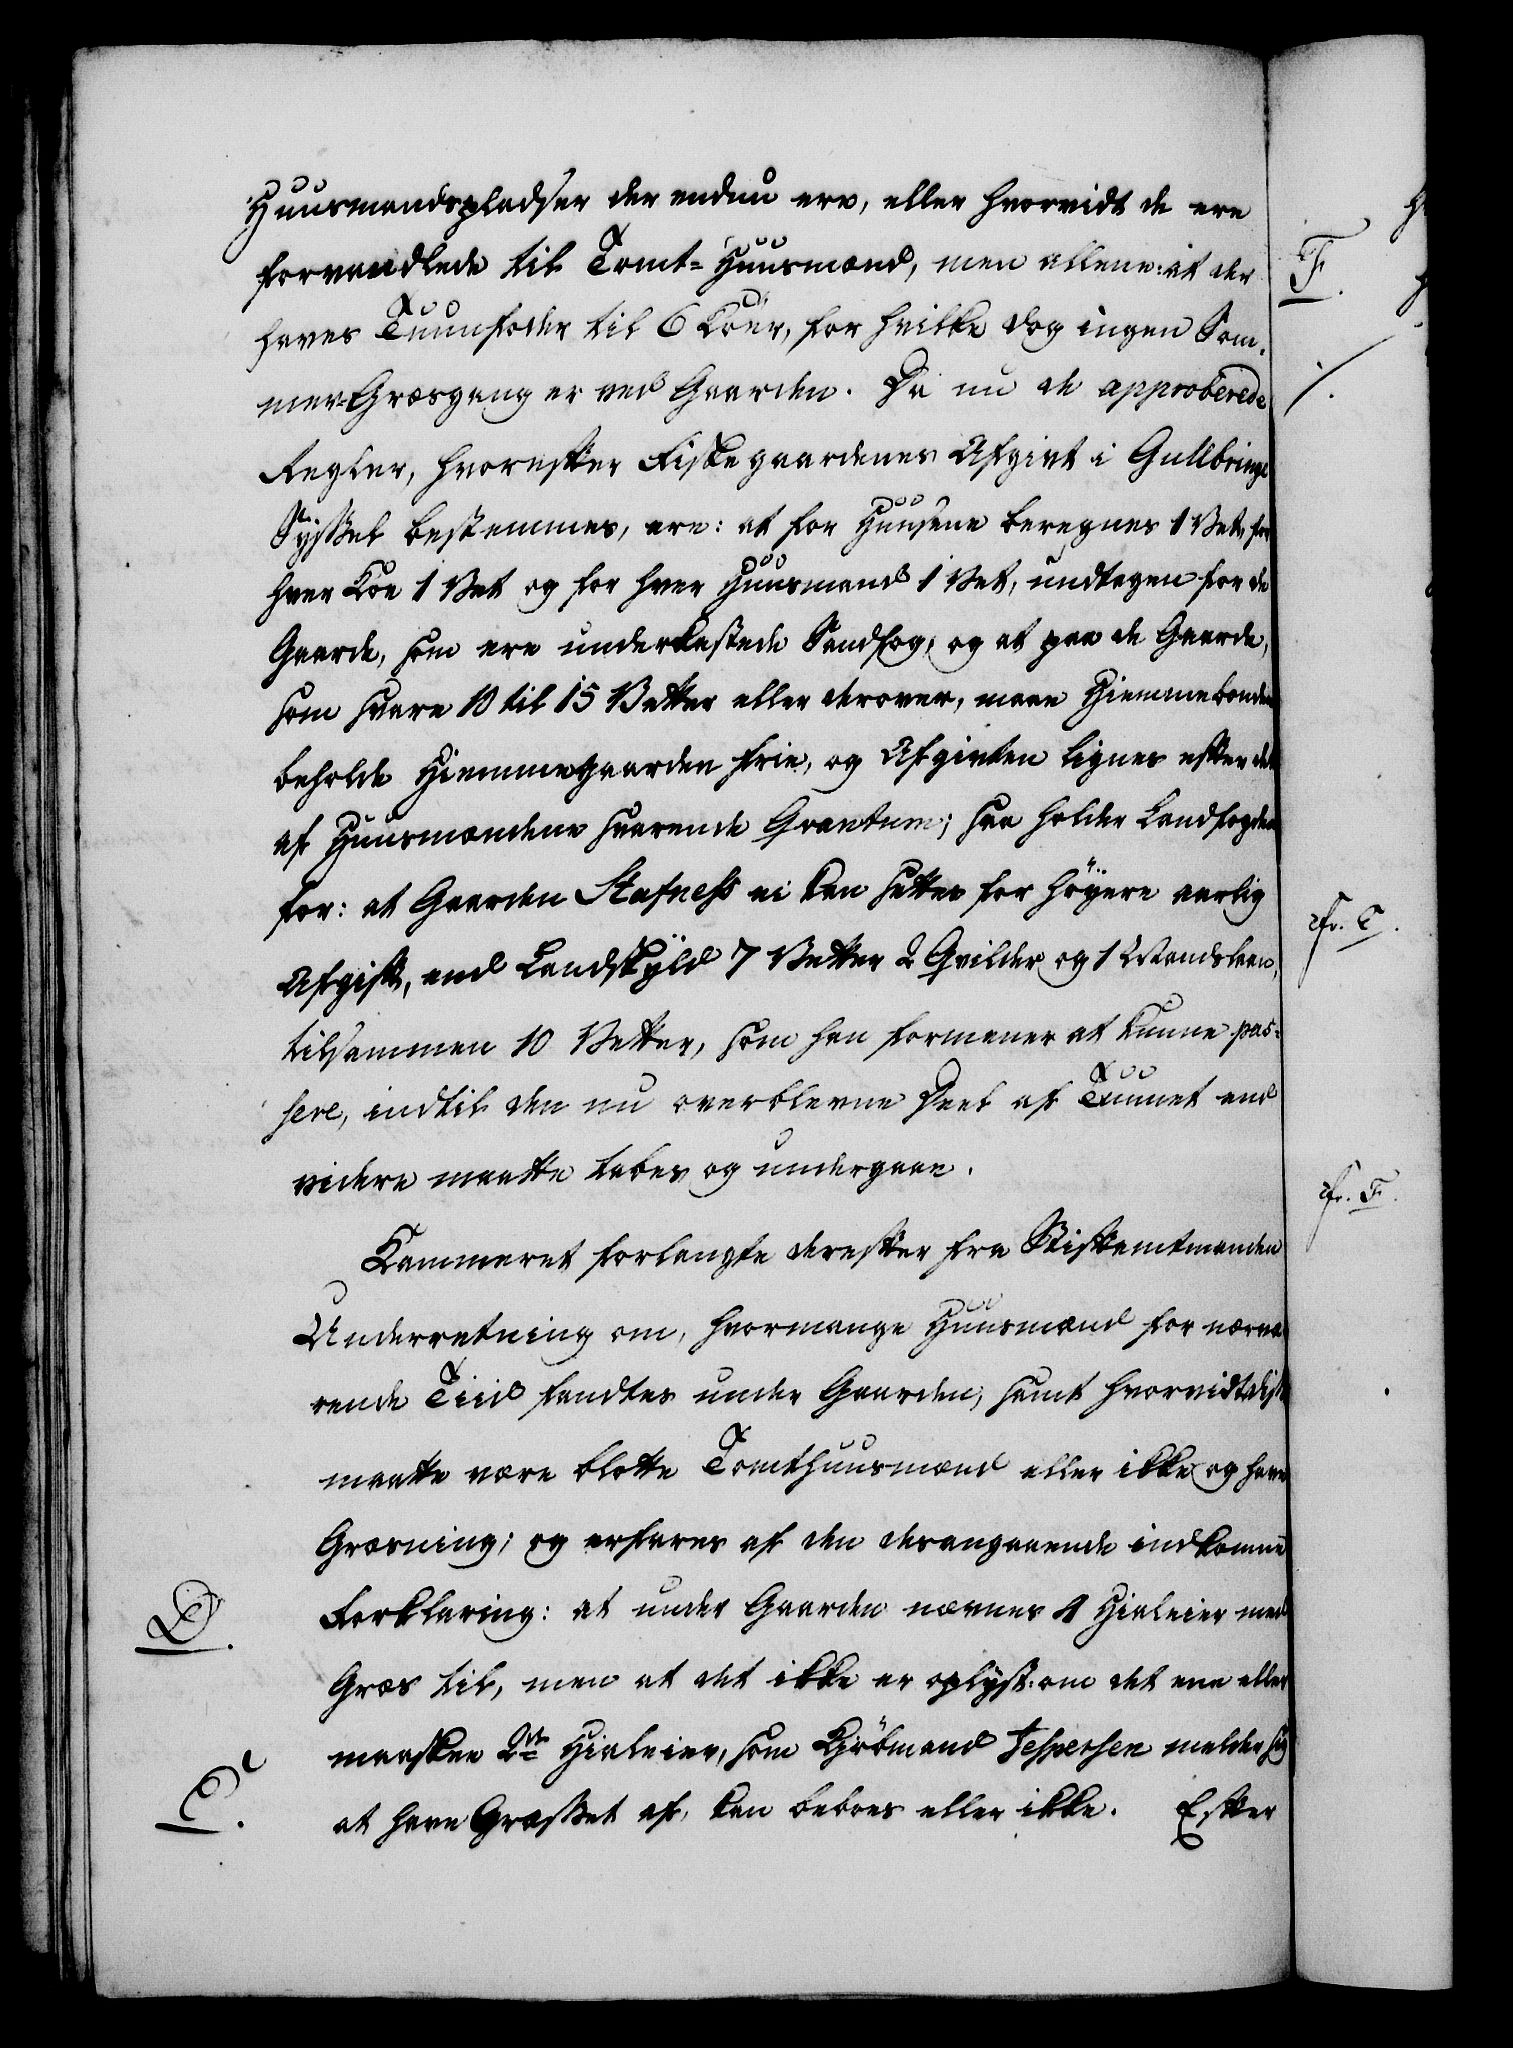 Huusmandspladser der endnu ere, eller hvorvidt de ere
forvandlede til Tomt-Huusmænd, men allene: at der
haves Tuunfoder til 6 Köer, for hvilke dog ingen Som-
mer-Græsgang er ved Gaarden. Da nu de approberede
Regler, hvorefter Fiskegaardenes Afgivt i Gullbringe
Syssel bestemmes, ere: at for Huusene beregnes 1 Vet, for
hver Koe 1 Vet og for hver Huusmand 1 Vet, undtagen for de
Gaarde, som ere underkastede Sandfog, og at paa de Gaarde,
som svare 10 til 15 Vetter eller derover, maae Hiemmebonden
beholde Hiemmegaarden frie, og Afgivten lignes efter det
af Huusmændene svarende Qvantum; saa holder Landfogden
for: at Gaarden Stafness ei kan sættes for höyere aarlig
Afgift, end Landskyld 7 Vetter 2 Qvilder og 1 Mandslaan,
tilsammen 10 Vetter, som han formener at kunne pas-
sere, indtil den nu overblevne Deel af Tuunet end
videre maatte tabes og undergaae.
Kammeret forlangte derefter fra Stiftamtmanden
Underretning om, hvormange Huusmænd for nærvæ
rende Tiid fandtes under Gaarden, samt hvorvidt disse
maatte være blotte Tomthuusmænd eller ikke og have
Græsning; og erfares af den desangaaende indkomne
D.
Forklaring: at under Gaarden nævnes 4 Hialeier med
Græs til, men at det ikke er oplyst: om det ene eller
maaskee 2de Hialeier, som Kjöbmand Jespersen melder sig
E.
at have Græsset af, kan beboes eller ikke. Efter
F.
cfr. C.
cfr. F.